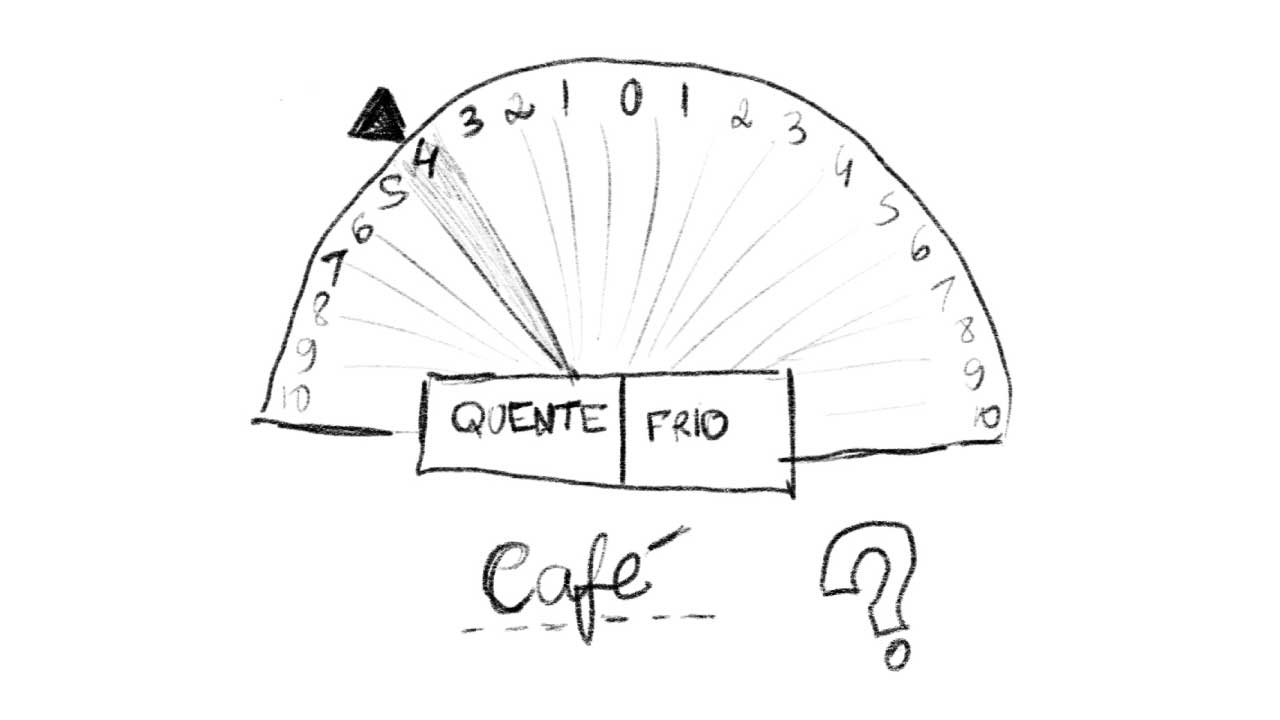 10 9 8 7 6 5 4 3 2 1 0 1 2 3 4 5 6 7 8 9 10
QUENTE FRIO
Café ?